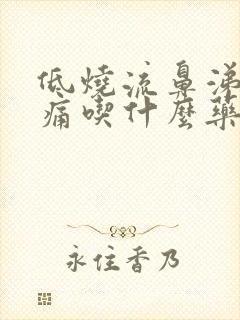 低燒流鼻涕
痛喫什麼藥
永住香乃